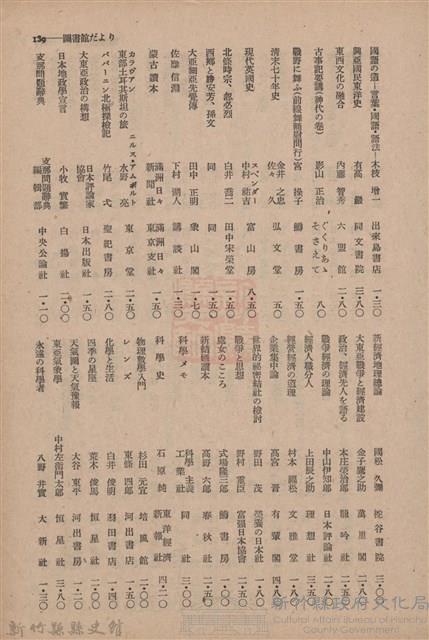 139——圖書館だより
國語の道—言葉・國語・語法— 木枝 增一 出來島書店 一・三〇
興亞國民東洋史 有高 巖 同文書院 三・八〇
東西文化の融合 內藤 智秀 六盟館 二・八〇
古事記要講(神代の卷) 影山 正治 ぐろりあ・そさえて ・八〇
戰野に舞ふ(前線舞踊慰問行) 宮 操子 鱒書房 一・五〇
清末七十年史 金井 之忠 佐々 久 弘文堂 ・五〇
現代英國史 スペンダー 中村 祐吉 富山房 八・五〇
北條時宗、忽必烈 白井 喬二 田中宋榮堂 ・五〇
西鄕と勝安芳、孫文 同 同 ・五〇
大亞細亞先覺傳 田中 正明 象山閣 一・七〇
佐藤信淵 下村 湖人 講談社 一・三〇
蒙古讀本 滿洲日日新聞社 滿洲日々東京支社 一・五〇
カラヴァン 東部土耳其斯坦の旅 ニルス・アムボルト 水野 亮 東京堂 二・五〇
パパーニン北極探檢記 竹尾 弌 聖紀書房 二・八〇
大東亞政治の構想 日本評論家協會 日本出版社 ・五〇
日本地政學宣言 小牧 實繁 白揚社 二・〇〇
支那問題辭典 支那問題辭典編輯部 中央公論社 一・二〇
新經濟地理總論 國松 久彌 柁谷書院 三・〇〇
大東亞戰爭と經濟建設 金子鷹之助 萬里閣 二・八〇
政治、經濟先人を語る 本庄榮治郎 龍吟社 二・五〇
戰爭經濟の理論 中山伊知郎 日本評論社 二・八〇
經濟人職分人 上田辰之助 理想社 三・五〇
經營經濟の道理 村本 福松 文雅堂 一・八〇
企業集中論 高宮 晋 有斐閣 四・八〇
世界的祕密結社の檢討 野田 茂 榮養の日本社 一・八〇
戰爭と思想 野村 重臣 富强日本協會 二・五〇
處女のこころ 式場隆三郎 鱒書房 二・五〇
新結婚讀本 高野 六郎 春秋社 二・五〇
科學メモ 科學主義工業社 同社 三・〇〇
科學史 石原 純 東洋經濟新報社 四・二〇
物理數學入門 杉田 元宜 培風館 二・〇〇
レンズ 東條 四郎 河出書房 一・五〇
化學と生活 白井 俊明 羽田書店 一・五〇
四季の星座 荒木 俊馬 恒星社 二・〇〇
天氣圖と天氣豫報 大谷 東平 河出書房 一・五〇
東亞氣象學 中村左衛門太郎 恒星社 三・八〇
永遠の科學者 八野井 實 大新社 一・三〇
新竹縣縣史館
新竹縣政府文化局
Cultural Affairs Bureau of Hsinchu County Government